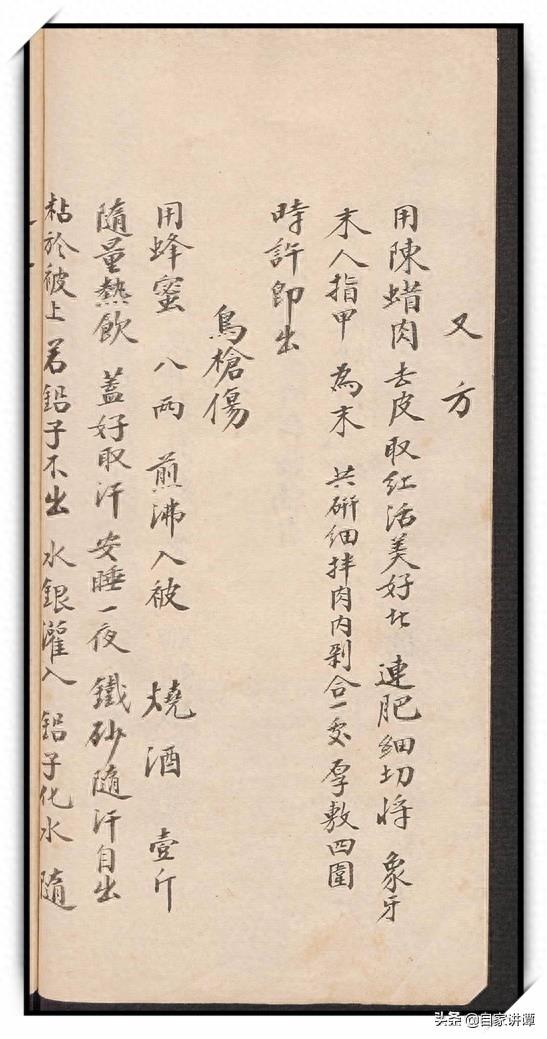 又方
用陳蜡肉去皮取紅活美好北 連肥細切將 象牙
末人指甲 為末 共研細拌肉内剁合一處厚敷四圍
時許即出
鳥槍傷
用蜂蜜 八兩 煎沸入被 燒酒 壹斤
隨量熱飲 蓋好取汗 安睡一夜 鐵砂隨汗自出
粘於被上 若鉛子不出 水銀灌入 鉛子化水 隨
头条 @自家讲谭